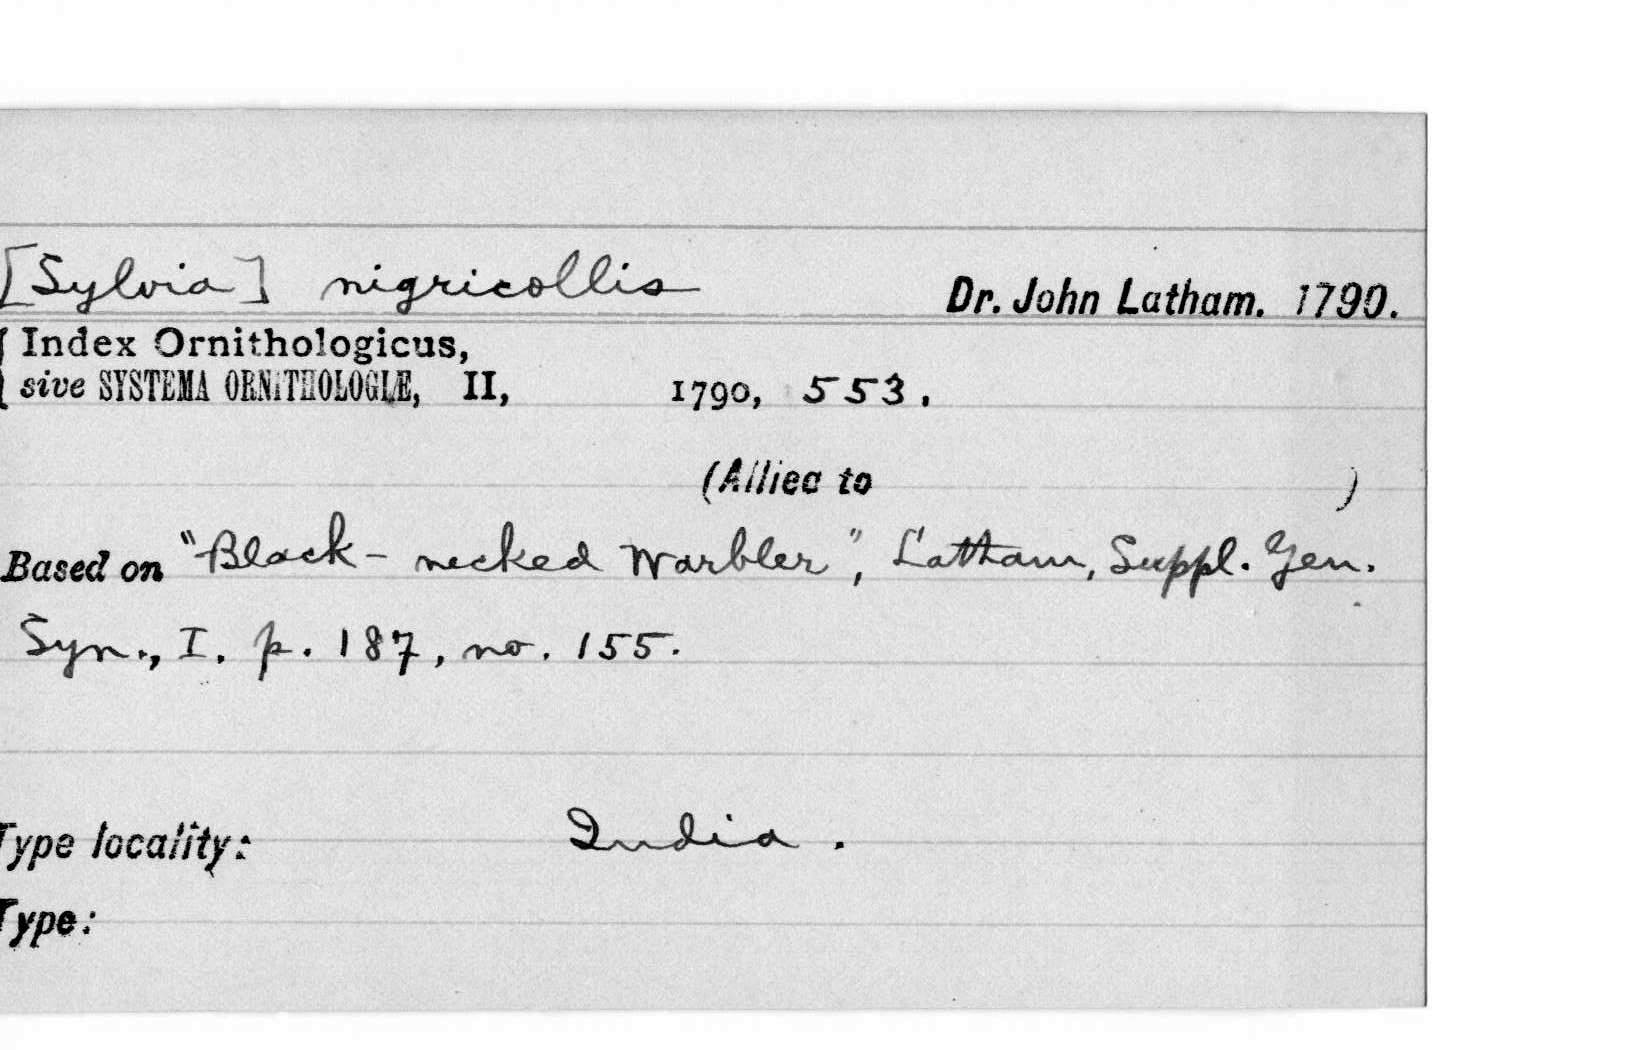 [Sylvia] nigricollis Dr. John Latham. 1790.
{ Index Ornithologicus,
sive SYSTEMA ORNITHOLOGIÆ, II, 1790, 553.
(Allied to )
Based on "Black-necked Warbler", Latham, Suppl. Gen.
Syn., I. p. 187, no. 155.
Type locality: India.
Type: